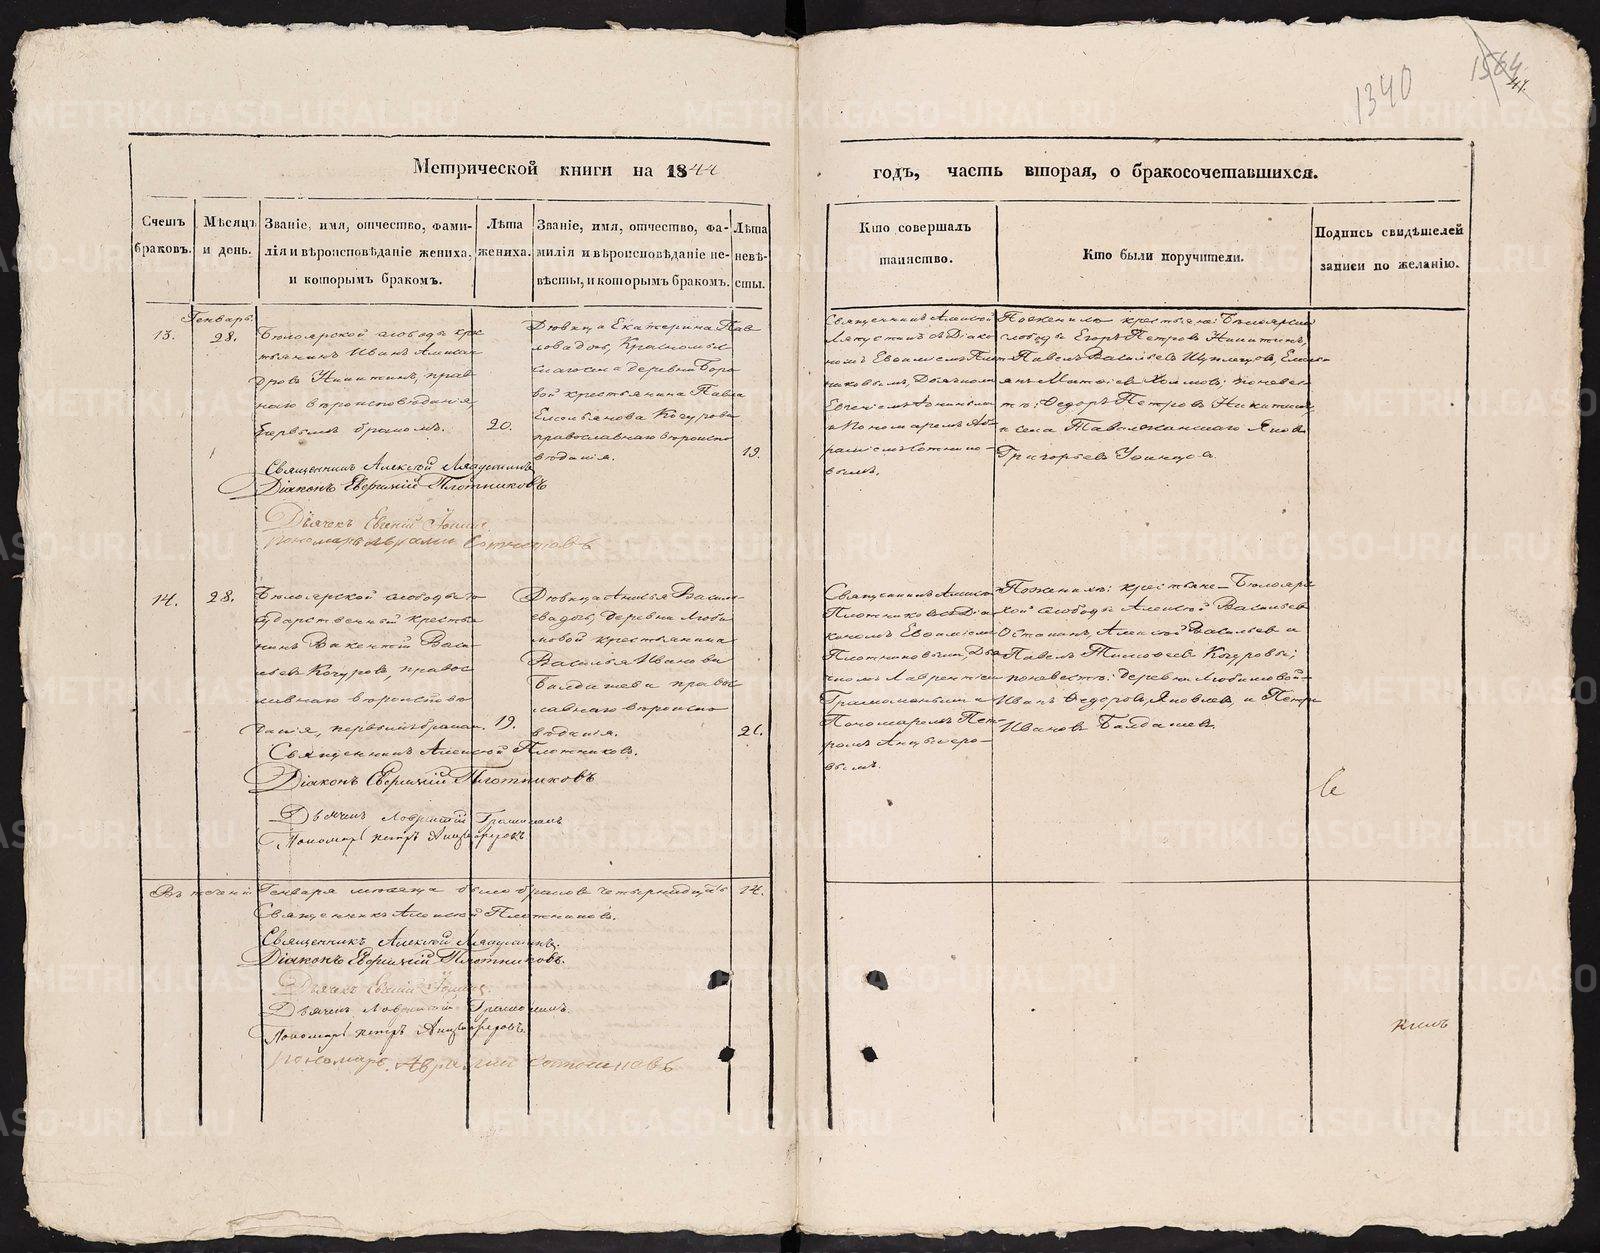 1340
1564
41.
Метрической книги на 1844
годъ, часть вторая, о бракосочетавшихся.
Счетъ браковъ.
Мѣсяцъ и день.
Званіе, имя, отчество, фами-
лія и вѣроисповѣданіе жениха,
и которымъ бракомъ.
Лѣта
жениха.
Званіе, имя, отчество, фа-
милія и вѣроисповѣданіе не-
вѣсты, и которымъ бракомъ.
Лѣта
невѣ-
сты.
Кто совершалъ
таинство.
Кто были поручители.
Подпись свидѣтелей
записи по желанію.
Генварь.
13.
28.
Бѣлоярской слободы кре
стьянинъ Иванъ Алексан
дровъ Никитинъ, прав
наго вѣроисповѣданія,
первымъ бракомъ.
20.
Дѣвица Екатерина Пав
лова дочь,
села деревни Боро
вой крестьянина Павла
Емельянова Кочурова
православнаго вѣроиспо
вѣданія.
19.
Священникъ Алексѣй
Ляпустинъ съ Діако
номъ Евфиміемъ Плот
никовымъ, Дьячкомъ
Евгеніемъ
и Пономаремъ Ав
раміемъ Сотнико-
вымъ.
По женихѣ крестьяне: Бѣлоярской
слободы Егоръ Петровъ Никитинъ,
Павелъ Васильевъ
невѣс
тѣ: Ѳедоръ Петровъ Никитинъ,
и села Яковъ
Григорьевъ
Священникъ Алексѣй Ляпустинъ
Діаконъ Евфимій Плотниковъ
Дьячекъ Евгеній
пономарь Аврамій Сотниковъ
14.
28.
Бѣлоярской слободы го
сударственный крестья
нинъ Василій Васи
льевъ Кочуровъ, правос
лавнаго вѣроисповѣ
данія, первымъ бракомъ.
19.
Дѣвица Анисья Василь
ева дочь, деревни Люби
мовой крестьянина
Василья Иванова
Балдашева правос
лавнаго вѣроиспо
вѣданія.
21.
Священникъ Алексѣй
Плотниковъ съ Діа
кономъ Евфиміемъ
Плотниковымъ, Дья
чкомъ Лаврентіемъ
и
Пономаремъ Пет-
ромъ Анцыферо-
вымъ.
По женихѣ: крестьяне Бѣлоярс
кой слободы Алексѣй Васильевъ
Останинъ, Алексѣй Васильевъ и
Павелъ Тимоѳеевъ Кочуровы;
по невѣстѣ: деревни Любимовой
Иванъ Ѳедоровъ Яковлевъ, и Петръ
Ивановъ Балдашевъ.
Священникъ Алексѣй Плотниковъ.
Діаконъ Евфимій Плотниковъ
Дьячекъ Лаврентій
Пономарь Петръ Анцыферовъ.
Въ теченіи Генваря мѣсяца было браковъ четырнадцать 14.
Священникъ Алексѣй Плотниковъ.
Священникъ Алексѣй Ляпустинъ.
Діаконъ Евфимій Плотниковъ.
Дьячекъ Евгеній
Дьячекъ Лаврентій
Пономарь Петръ Анцыферовъ
пономарь Аврамій Сотниковъ
METRIKI.GASO-URAL.RU